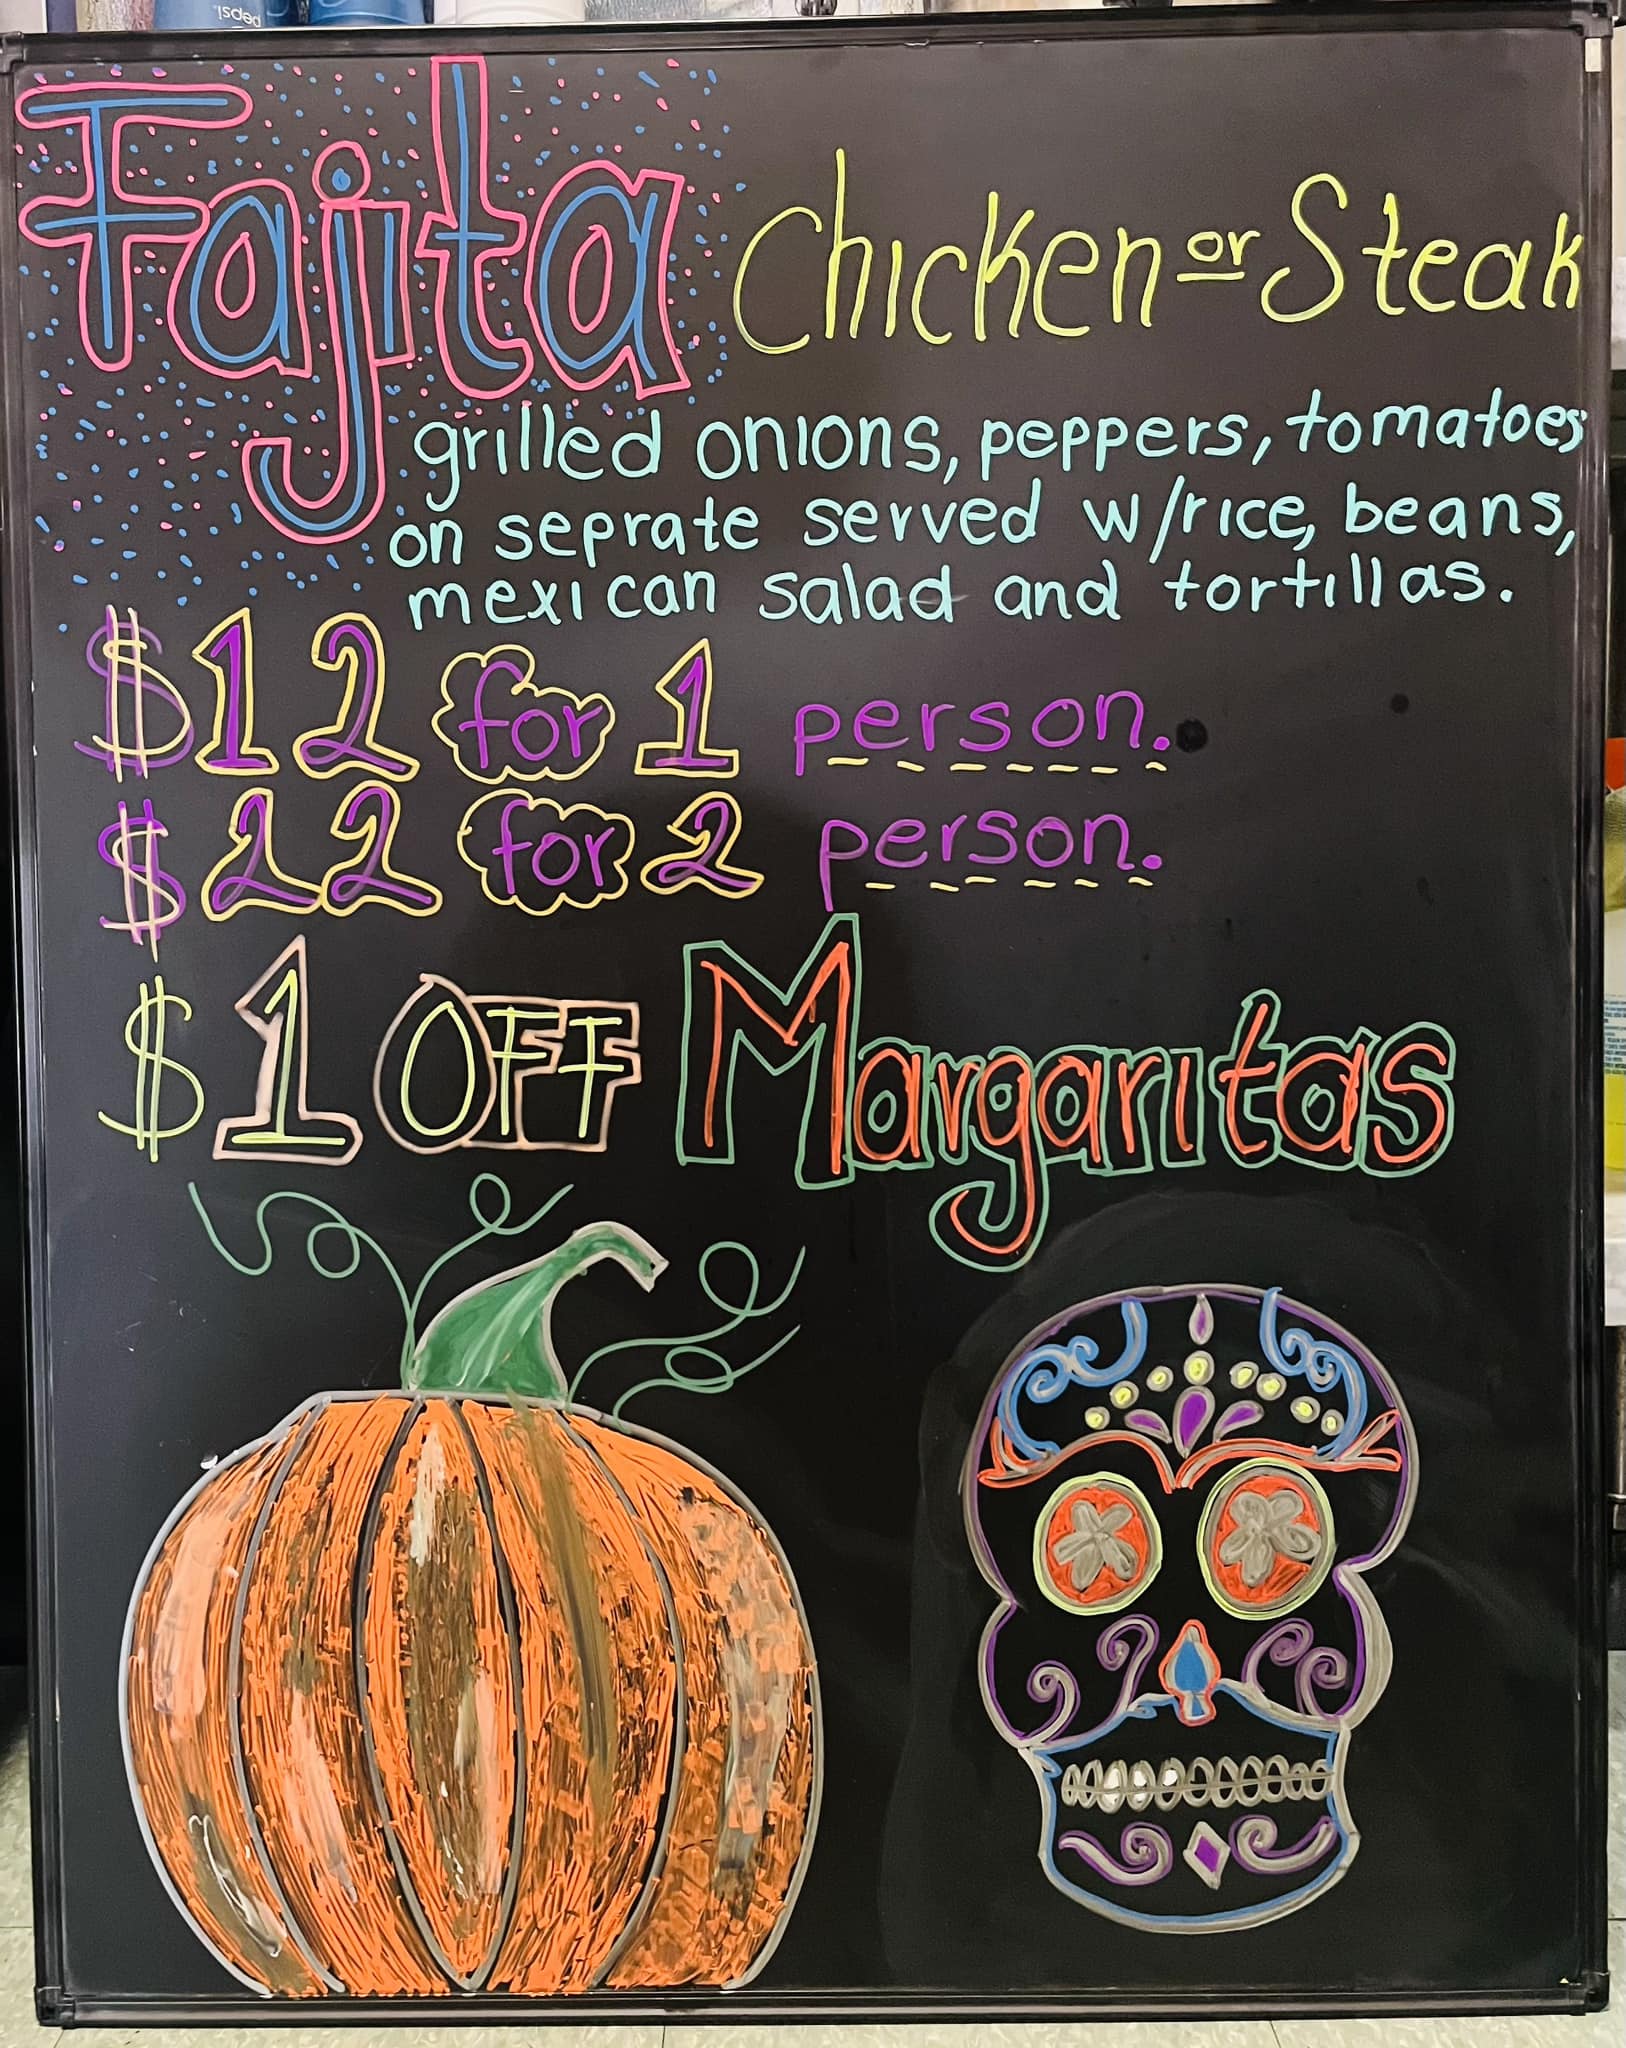 pepsi
Fajita Chicken or Steak
grilled onions, peppers, tomatoes
on seprate served w/rice, beans,
mexican salad and tortillas.
$12 for 1 person.
$22 for 2 person.
$1 OFF Margaritas